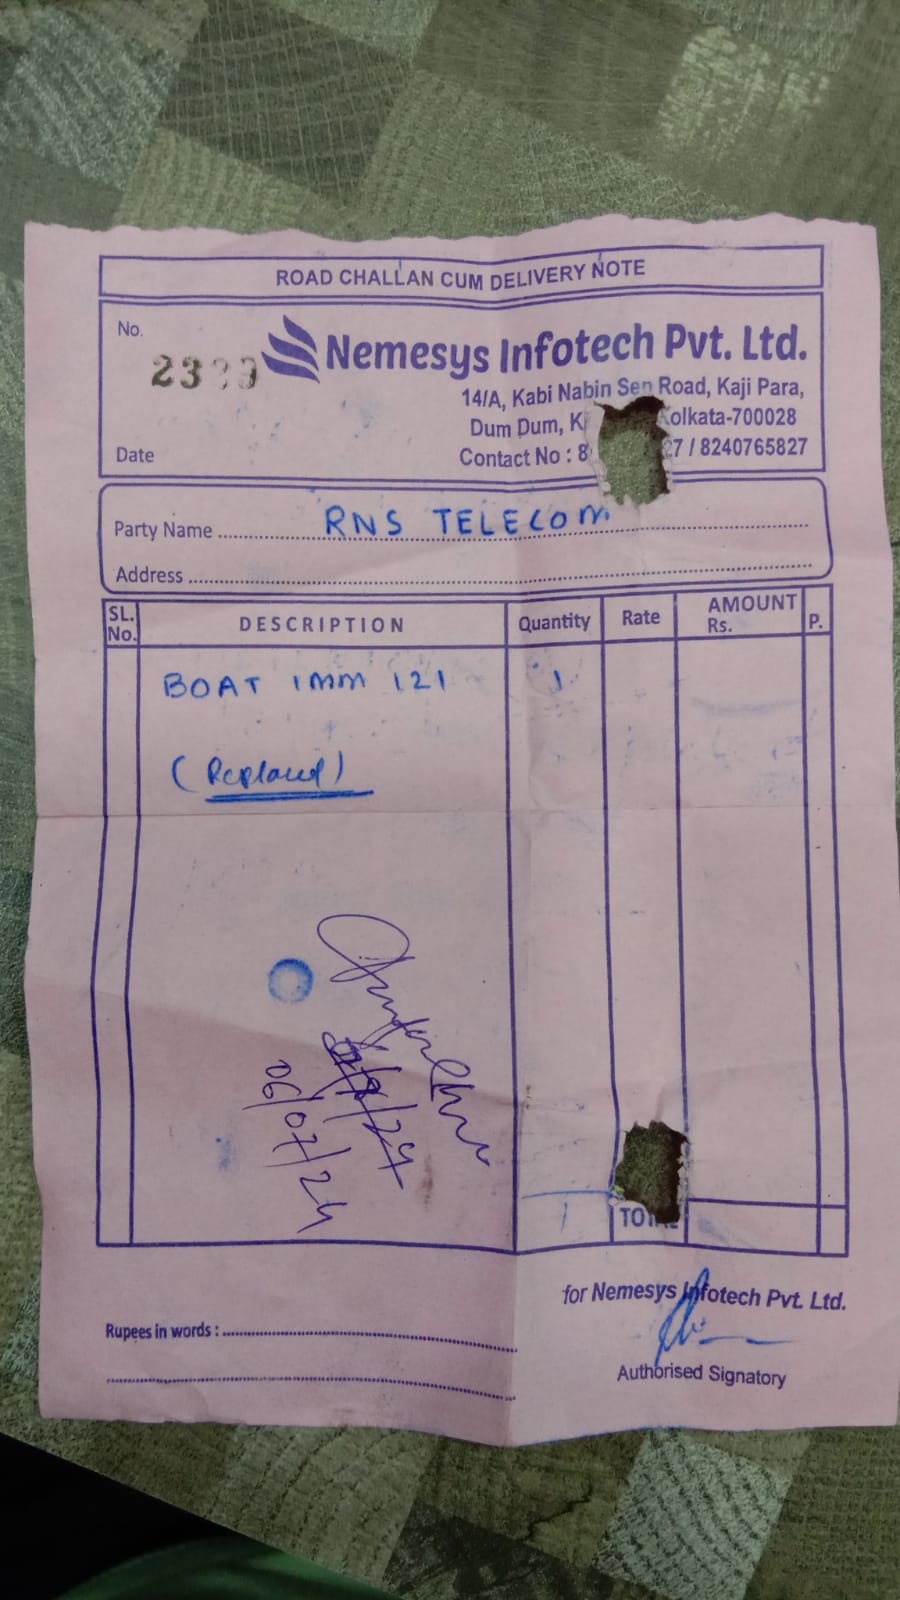 ROAD CHALLAN CUM DELIVERY NOTE
No.
Nemesys Infotech Pvt. Ltd.
14/A, Kabi Nabin Sen Road, Kaji Para,
Dum Dum, Kolkata-700028
Date
Contact No : 8 27 / 8240765827
Party Name RNS TELECOM
Address
SL. No. DESCRIPTION Quantity Rate AMOUNT Rs. P.
BOAT IMM 121 1
(Replaced)
06/07/24
1 TOTAL
for Nemesys Infotech Pvt. Ltd.
Rupees in words :
Authorised Signatory